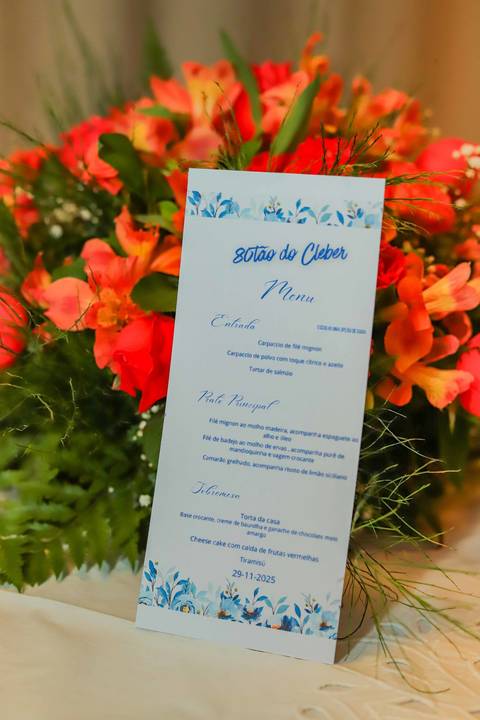 80tão do Cleber
Menu
Entrada
ESCOLHER UMA OPÇÃO DE CADA
Carpaccio de filé mignon
Carpaccio de polvo com toque cítrico e azeite
Tartar de salmão
Prato Principal
Filé mignon ao molho madeira, acompanha espaguete ao
alho e óleo
Filé de badejo ao molho de ervas , acompanha purê de
mandioquinha e vagem crocante
Camarão grelhado, acompanha risoto de limão siciliano
Sobremesa
Torta da casa
Base crocante, creme de baunilha e ganache de chocolate meio
amargo
Cheese cake com calda de frutas vermelhas
Tiramisú
29-11-2025